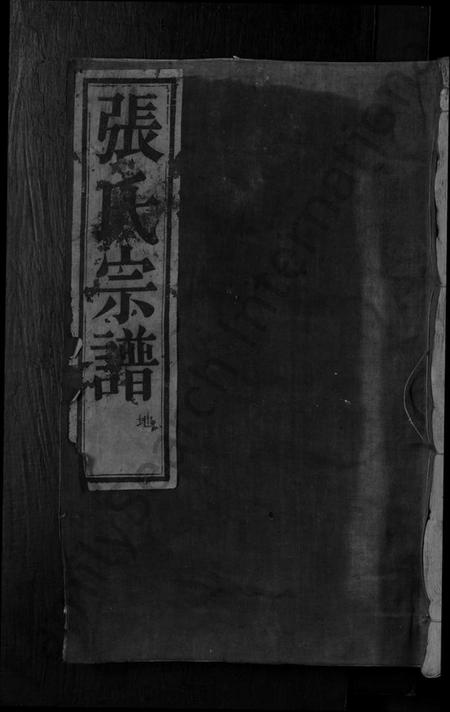 張氏宗譜
地
FamilySearch International